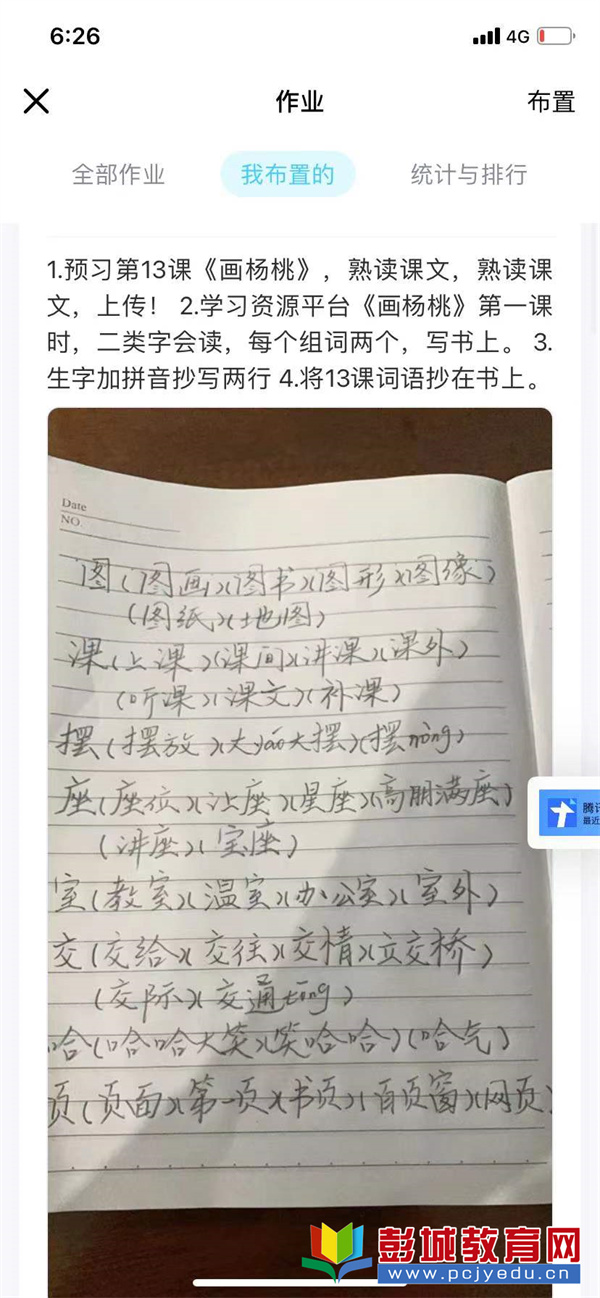 6:26
4G
作业
布置
全部作业 我布置的 统计与排行
1.预习第13课《画杨桃》，熟读课文，熟读课
文，上传！ 2.学习资源平台《画杨桃》第一课
时，二类字会读，每个组词两个，写书上。 3.
生字加拼音抄写两行 4.将13课词语抄在书上。
Date
NO.
图(图画)(图书)(图形)(图像)
(图纸)(地图)
课(上课)(课间)(讲课)(课外)
(听课)(课文)(补课)
摆(摆放)(大yáo大摆)(摆nòng)
座(座位)(让座)(星座)(高朋满座)
(讲座)(宝座)
室(教室)(温室)(办公室)(室外)
交(交给)(交往)(交情)(立交桥)
(交际)(交通tōng)
哈(哈哈大笑)(笑哈哈)(哈气)
页(页面)(第一页)(书页)(百页窗)(网页)
腾讯
最近
彭城教育网
www.pcjyedu.cn